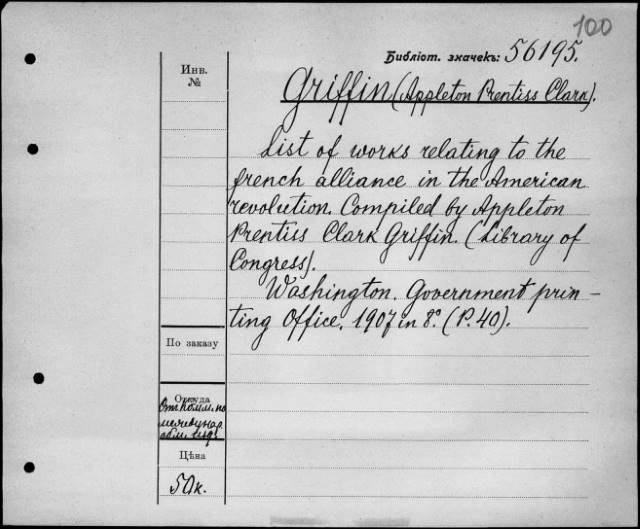 100
Библіот. значекъ: 56195.
Инв.
№
Griffin (Appleton Prentiss Clark).
List of works relating to the
french alliance in the American
revolution. Compiled by Appleton
Prentiss Clark Griffin. (Library of
Congress).
Washington. Government prin-
ting Office. 1907 in 8°. (P. 40).
По заказу
Откуда
От Комм. по
междунар.
обм. изд.
Цѣна
50 к.